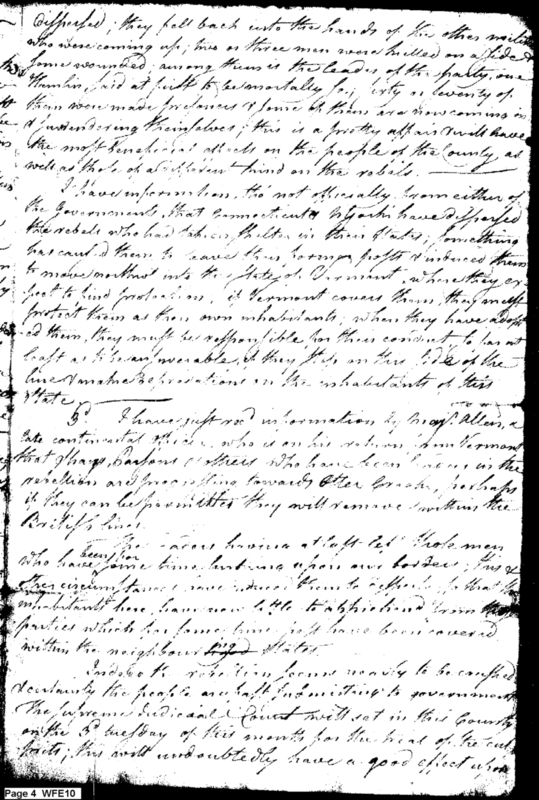 dispersed; they fell back into the hands of the other militia
who were coming up; two or three men were killed on a side &
some wounded; among them is the leader of the party, one
Hamlin, said at first to be mortally so; sixty or seventy of
them were made prisoners & some of them are now coming in
& surrendering themselves; this is a pretty affair & will have
the most beneficial effects on the people of the County as
well as those of a different kind on the rebels.
I have information, tho' not officially from either of
the Governments, that Connecticut & York have dispersed
the rebels who had taken shelter in their States; something
has caused them to leave their former posts & induced them
to move northwd into the State of Vermont, where they ex
pect to find protection; if Vermont covers them, they must
protect them as their own inhabitants; when they have adopt
ed them, they must be responsible for their conduct so far at
least as to be answerable, if they step in this side of the
line & make depredations on the inhabitants of this
State
3d I have just recd information by Majr Allen, a
late continental officer, who is on his return from Vermont
that Shays, Parsons & others who have been in the
rebellion are proceeding towards Otter Creek, perhaps
if they can be permitted they will remove within the
British lines.
The having at last left those men
who have been for some time lurking upon our borders; this &
other circumstances have induced them to disperse, so that the
inhabitants here have now little to apprehend from the
parties which for some time past have been covered
within the neighbouring States
Indeed the rebellion seems nearly to be crushed
& certainly the people are fast submitting to government
The Supreme Judicial Court will set in this County
on the 3d tuesday of this month for the trial of the cul
prits; this will undoubtedly have a good effect upon
Page 4 WFE10